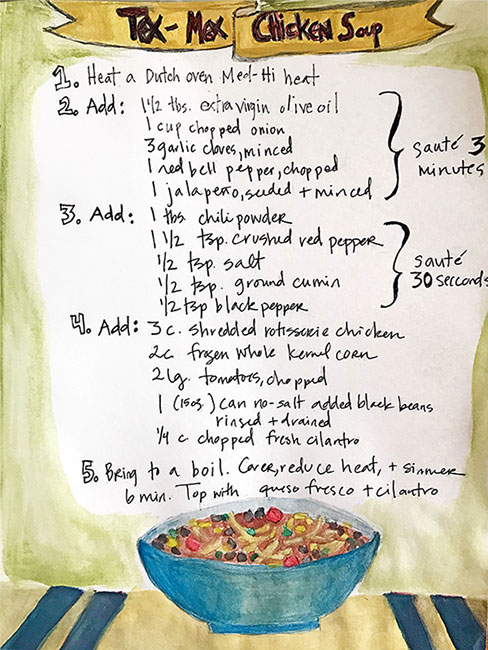 Tex-Mex Chicken Soup
1. Heat a Dutch oven Med-Hi heat
2. Add: 1 1/2 tbs. extra virgin olive oil
1 cup chopped onion
3 garlic cloves, minced
1 red bell pepper, chopped
1 jalapeño, seeded + minced
sauté 3
minutes
3. Add: 1 tbs. chili powder
1 1/2 tsp. crushed red pepper
1/2 tsp. salt
1/2 tsp. ground cumin
1/2 tsp black pepper
sauté
30 seconds
4. Add: 3 c. shredded rotisserie chicken
2 c. frozen whole kernel corn
2 lg. tomatoes, chopped
1 (15oz.) can no-salt added black beans
rinsed + drained
1/4 c chopped fresh cilantro
5. Bring to a boil. Cover, reduce heat, + simmer
6 min. Top with queso fresco + cilantro